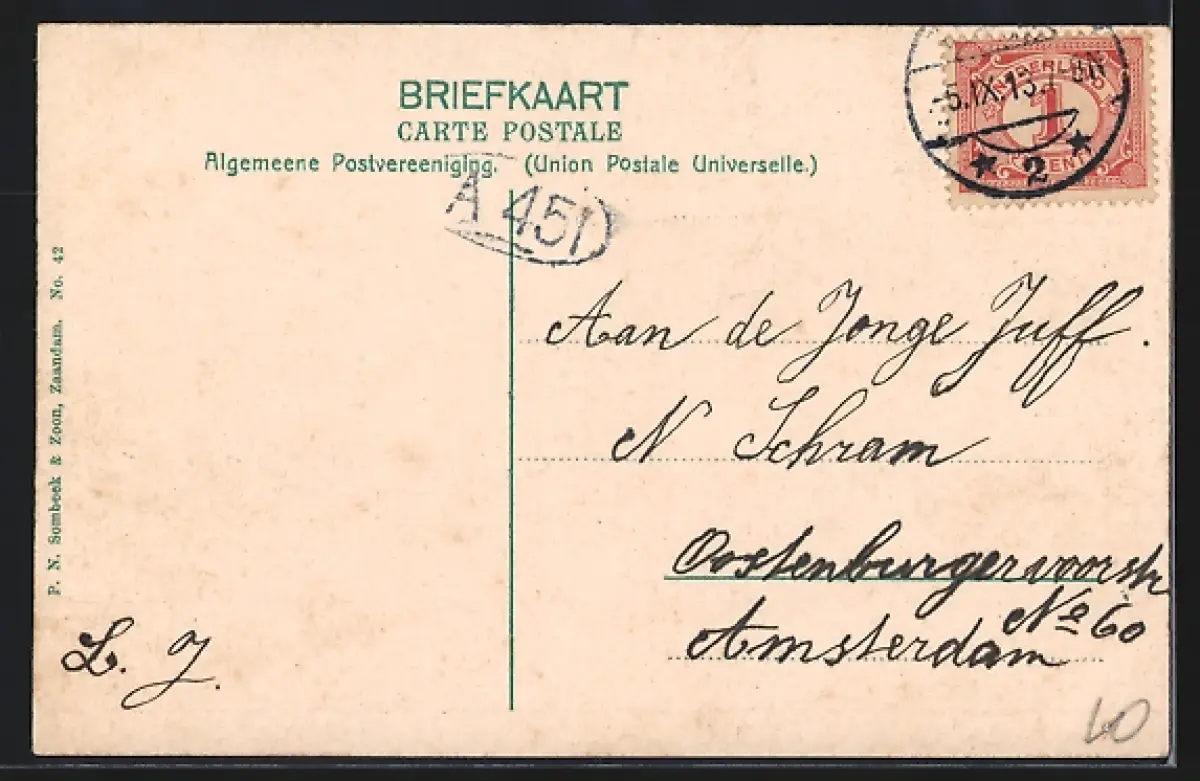 BRIEFKAART
CARTE POSTALE
Algemeene Postvereeniging. (Union Postale Universelle.)
NEDERLAND
1
CENT
2
A 451
Aan de Jonge Juff.
N Schram
Oostenburgervoorstr
No 60
Amsterdam
L. J.
P. N. Sombeek & Zoon, Zaandam. No. 42